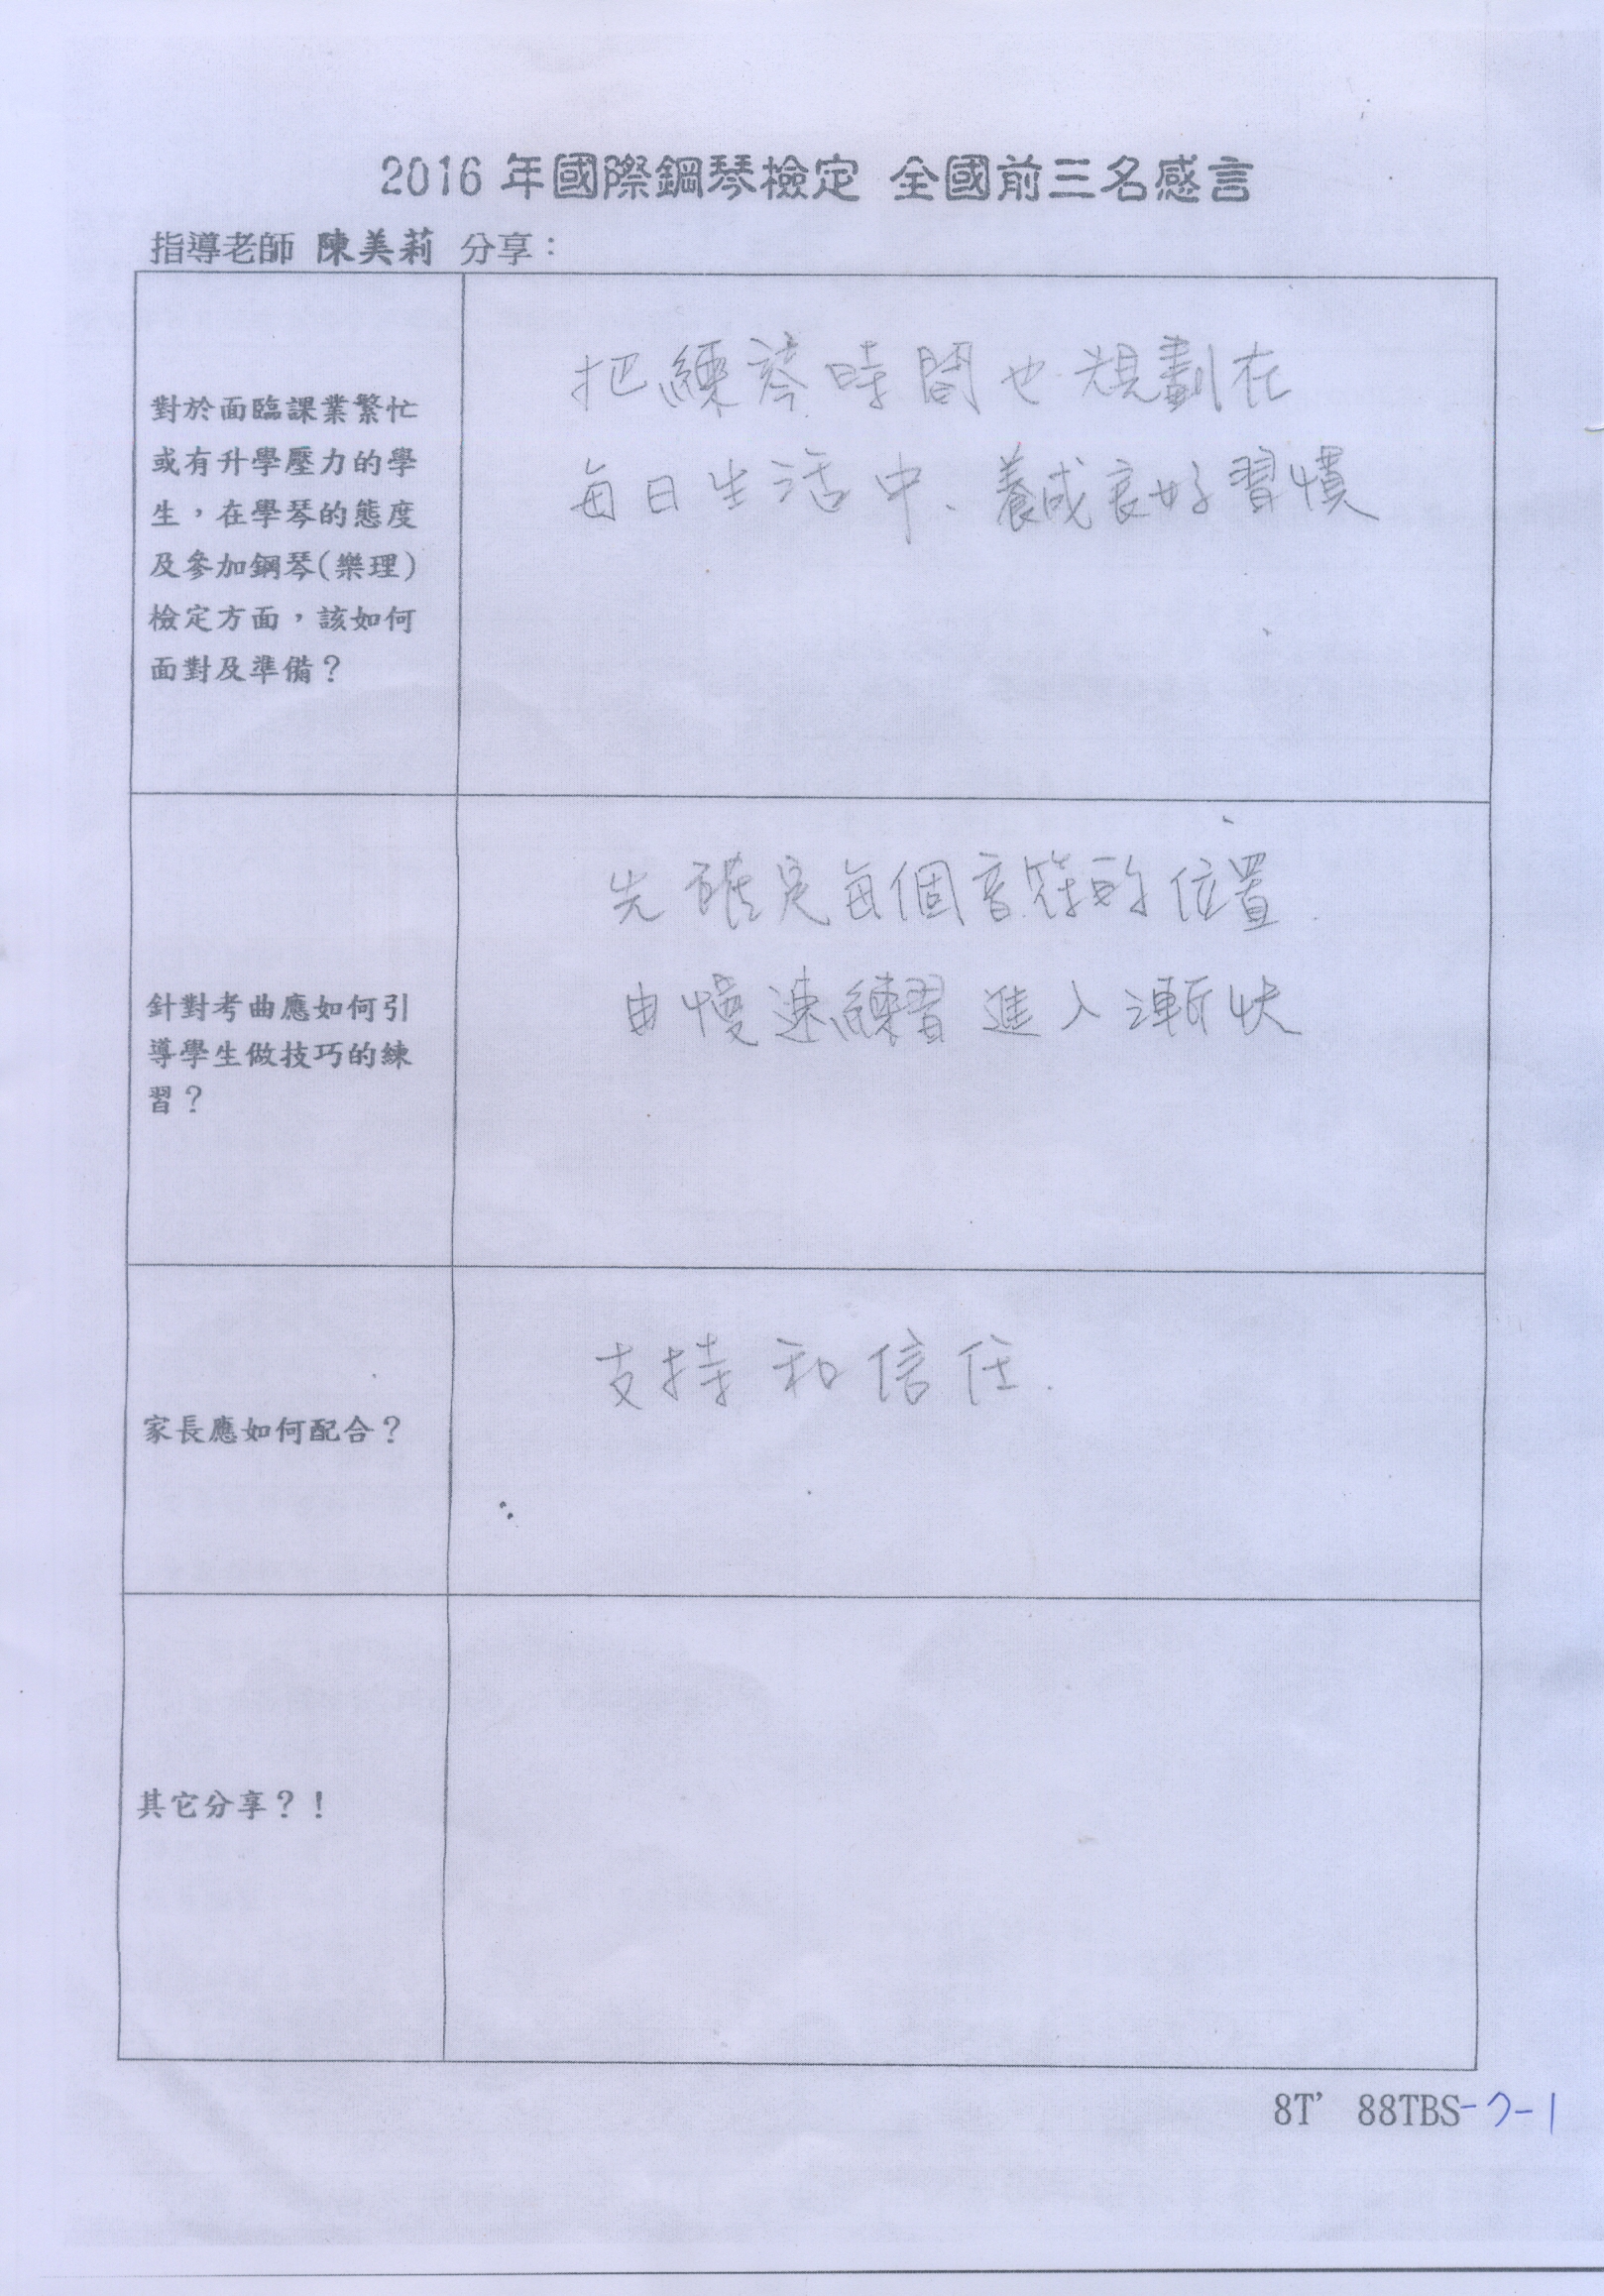 2016 年國際鋼琴檢定 全國前三名感言
指導老師 陳美莉 分享：
對於面臨課業繁忙
或有升學壓力的學
生，在學琴的態度
及參加鋼琴(樂理)
檢定方面，該如何
面對及準備？
把練琴時間也規劃在
每日生活中、養成良好習慣
針對考曲應如何引
導學生做技巧的練
習？
先確定每個音符的位置
由慢速練習進入漸快
家長應如何配合？
支持和信任.
其它分享？！
8T' 88TBS-7-1